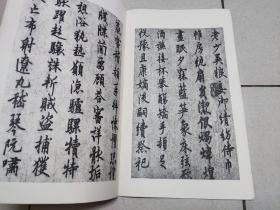 老少異粮妾御績紡侍巾
帷房紈扇圓潔銀燭煒煌
晝眠夕寐藍笋象床絃歌
酒讌接杯舉觴矯手頓足
悅豫且康嫡後嗣續祭祀
再拜悚懼恐惶
牋牒簡要顧答審詳骸垢
想浴執熱願涼驢騾犢特
駭躍超驤誅斬賊盜捕獲
叛亡布射遼丸嵇琴阮嘯